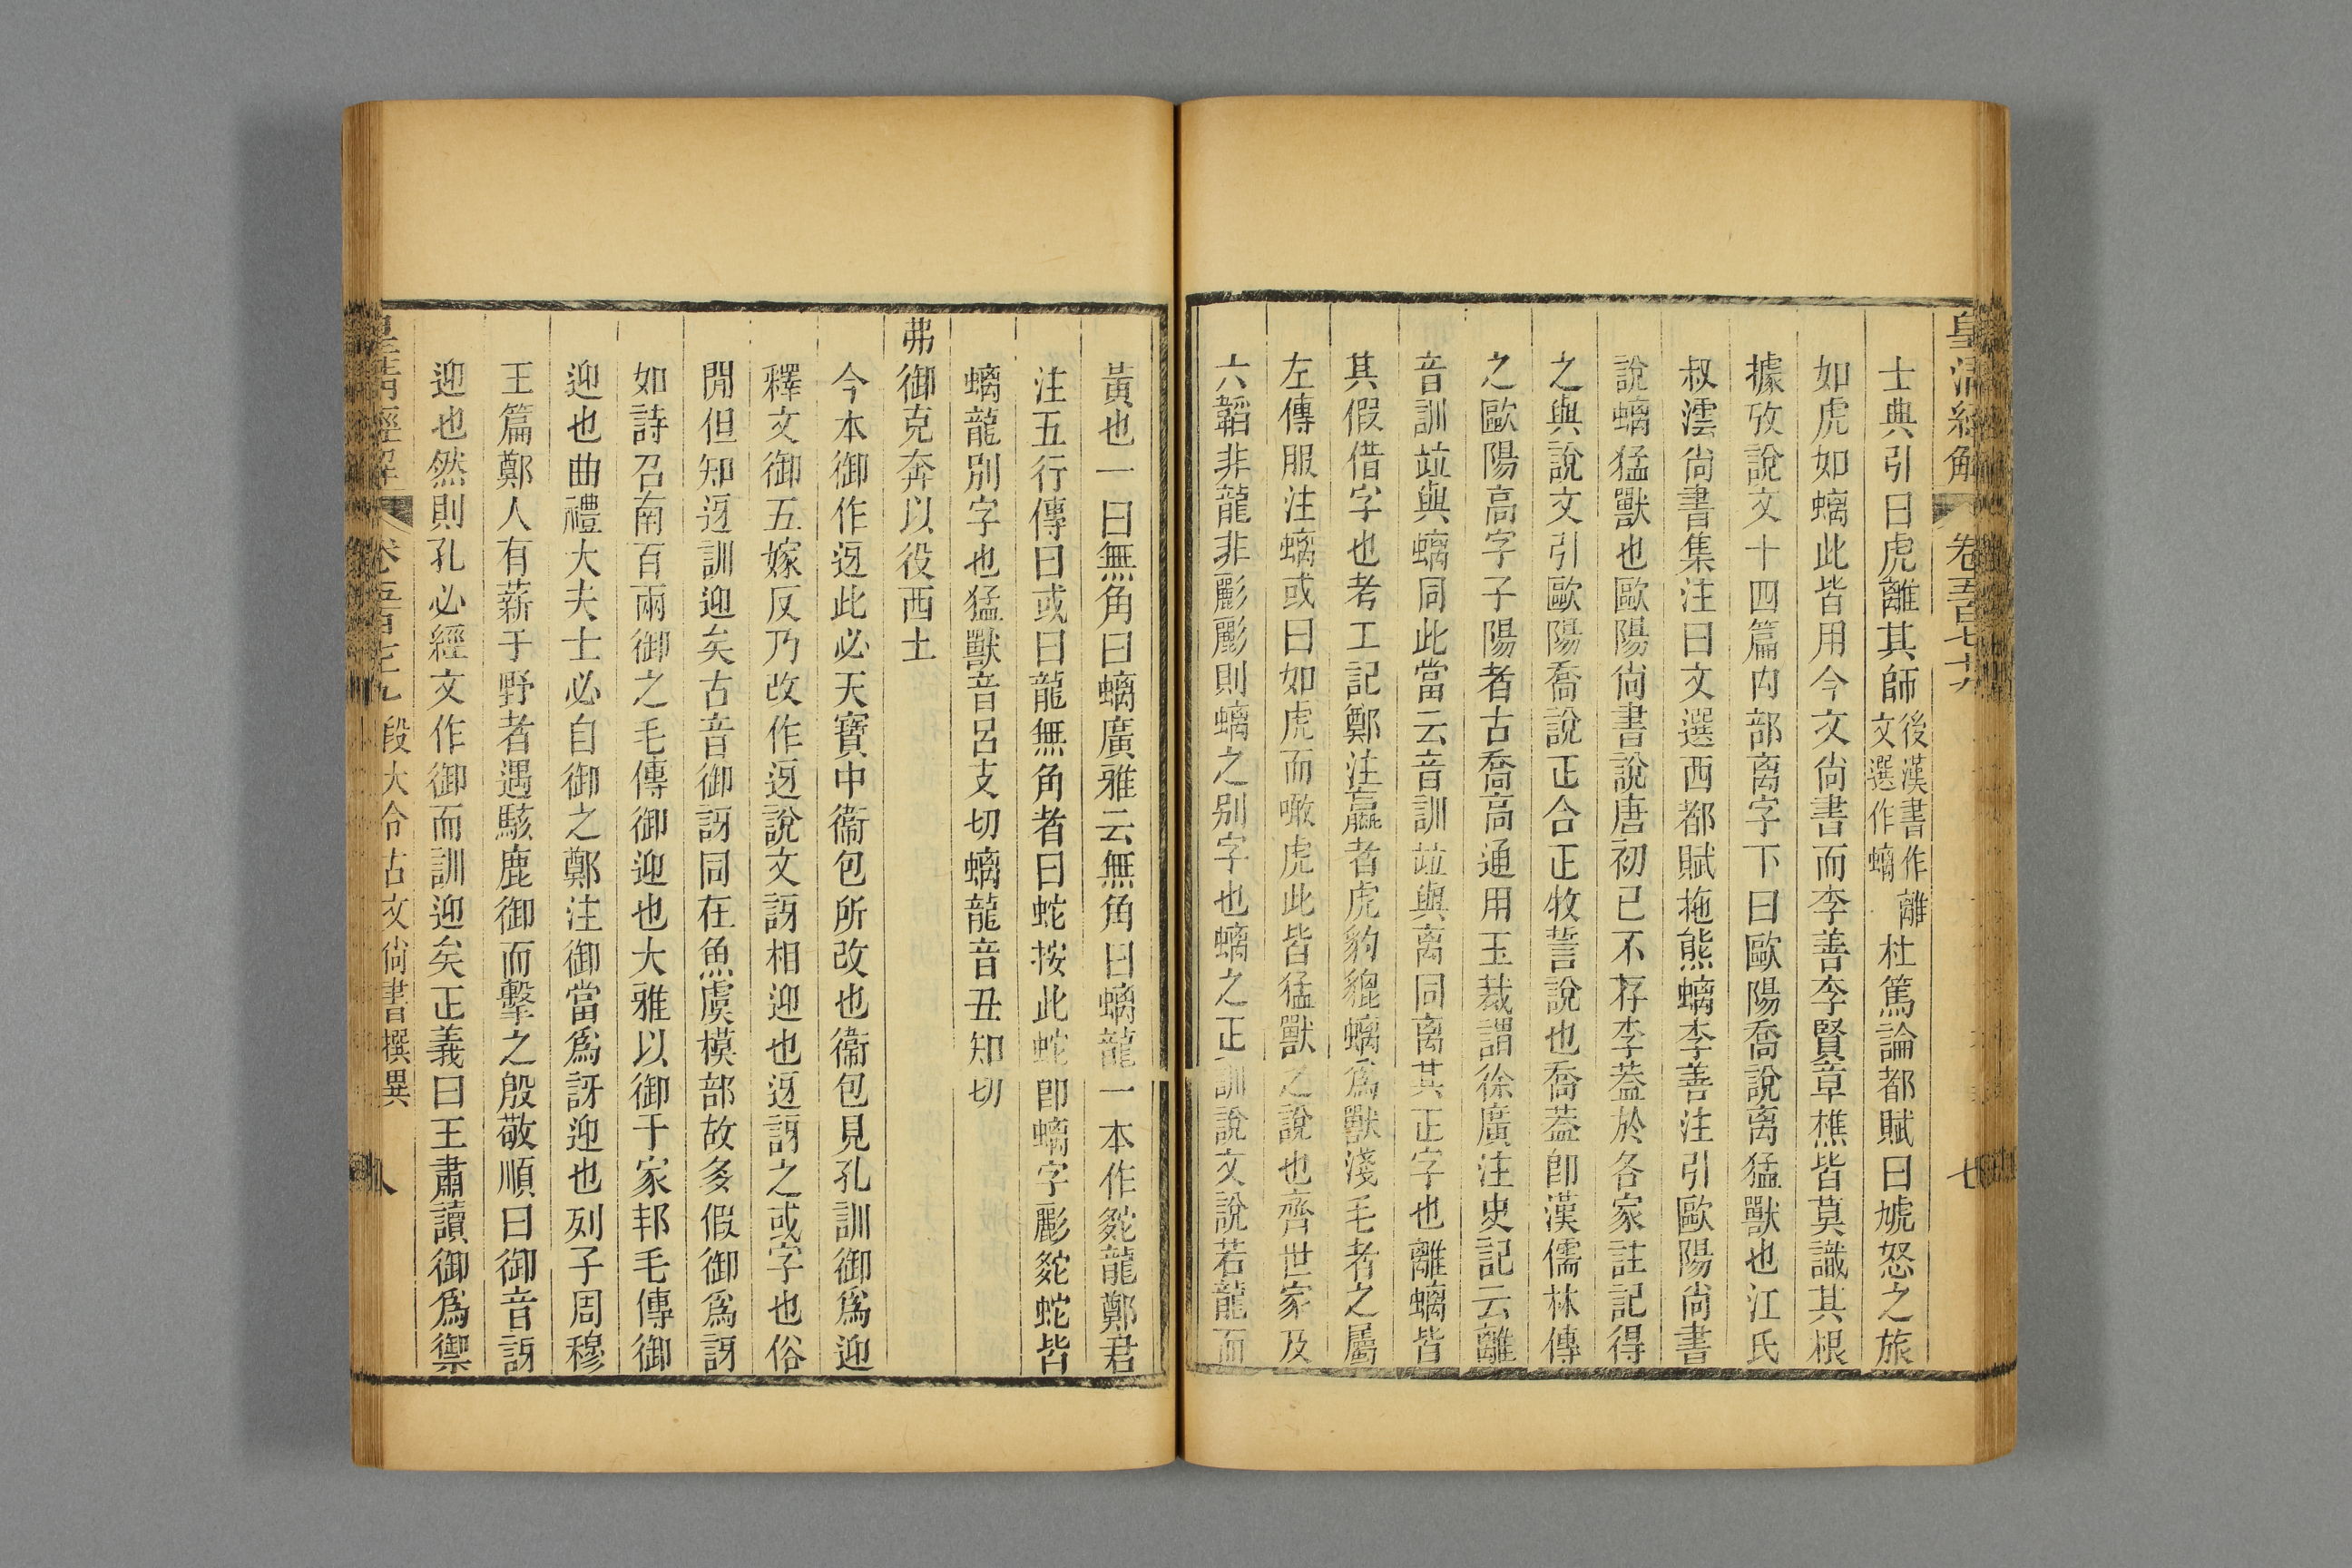 皇清經解 卷五百七十九 七
士典引曰虎離其師後漢書作離文選作螭杜篤論都賦曰虓怒之旅
如虎如螭此皆用今文尙書而李善李賢章樵皆莫識其根
據攷說文十四篇内部离字下曰歐陽喬說离猛獸也江氏
叔澐尙書集注曰文選西都賦拖熊螭李善注引歐陽尙書
說螭猛獸也歐陽尙書說唐初已不存李葢於各家註記得
之與說文引歐陽喬說正合正牧誓說也喬葢卽漢儒林傳
之歐陽高字子陽者古喬高通用玉裁謂徐廣注史記云離
音訓竝與螭同此當云音訓竝與离同离其正字也離螭皆
其假借字也考工記鄭注臝者虎豹貔螭爲獸淺毛者之屬
左傳服注螭或曰如虎而噉虎此皆猛獸之說也齊世家及
六韜非龍非彲彲則螭之别字也螭之正訓說文說若龍而
黃也一曰無角曰螭廣雅云無角曰螭龍一本作䖦龍鄭君
注五行傳曰或曰龍無角者曰蛇按此蛇卽螭字彲䖦蛇皆
螭龍别字也猛獸音呂支切螭龍音丑知切
弗御克奔以役西土
今本御作迓此必天寶中衞包所改也衞包見孔訓御爲迎
釋文御五嫁反乃改作迓說文訝相迎也迓訝之或字也俗
閒但知迓訓迎矣古音御訝同在魚虞模部故多假御爲訝
如詩召南百兩御之毛傳御迎也大雅以御于家邦毛傳御
迎也曲禮大夫士必自御之鄭注御當爲訝迎也列子周穆
王篇鄭人有薪于野者遇駭鹿御而擊之殷敬順曰御音訝
迎也然則孔必經文作御而訓迎矣正義曰王肅讀御爲禦
皇清經解 卷五百七十九 段大令古文尙書撰異 八